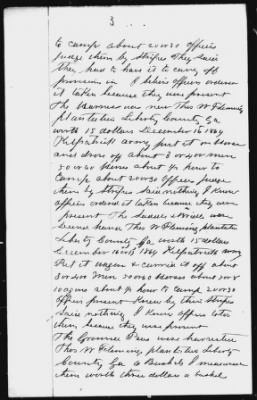 3
to camp about 20 or 30 officers
judge them by Stripes They Said
They had to have it to carry off
provisions in I believe officers ordered
it taken because they was present
The Harness was new Thos W Fleming
plantation Liberty County Ga
worth 15 dollars December 15 1864
Kilpatrick army put it on Horses
and drove off about 3 or 400 men
20 or 30 Horses about ½ hour to
Camp about 20 or 30 officers judge
them by Stripes Said nothing I know
officers ordered it taken because they were
present The Saddle & Bridle was
second hand Thos W Fleming plantation
Liberty County Ga worth 15 dollars
December 15 1864 Kilpatricks army
Put it wagon & carried it off about
3 or 400 Men 20 or 30 Horses about 5 or 6
wagons about ½ hour to camp 20 or 30
officers present Knew by their Stripes
Said nothing I know officers taken
them because they was present
The Ground Peas was harvested
Thos W Fleming plantation Liberty
County Ga 2 Bushels I measured
them worth three dollars a bushel